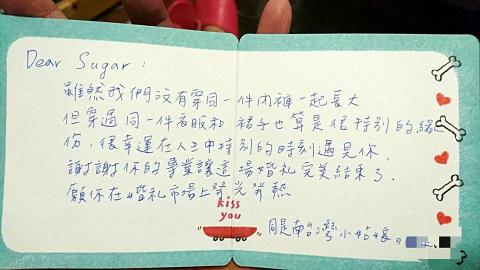 Dear Sugar:
雖然我們沒有穿同一件內褲一起長大
但穿過同一件衣服和裙子也算是很特別的緣
份,很幸運在人生中特別的時刻遇見你,
謝謝你的專業讓這場婚禮完美結束了,
願你在婚禮市場上發光發熱
kiss
you
同是南台灣小姑娘。